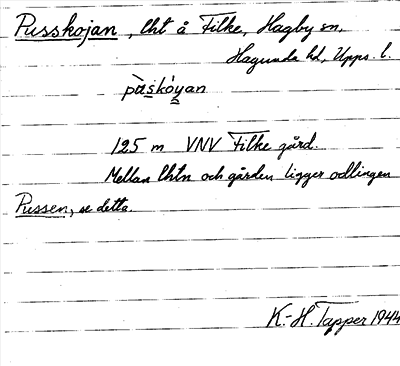 Pusskojan, lht å Filke, Hagby sn,
Hagunda hd, Upps. l.
pùskóyan
125 m VNV Filke gård.
Mellan lhtn och gården ligger odlingen
Pussen, se detta.
K.-H. Tapper 1944